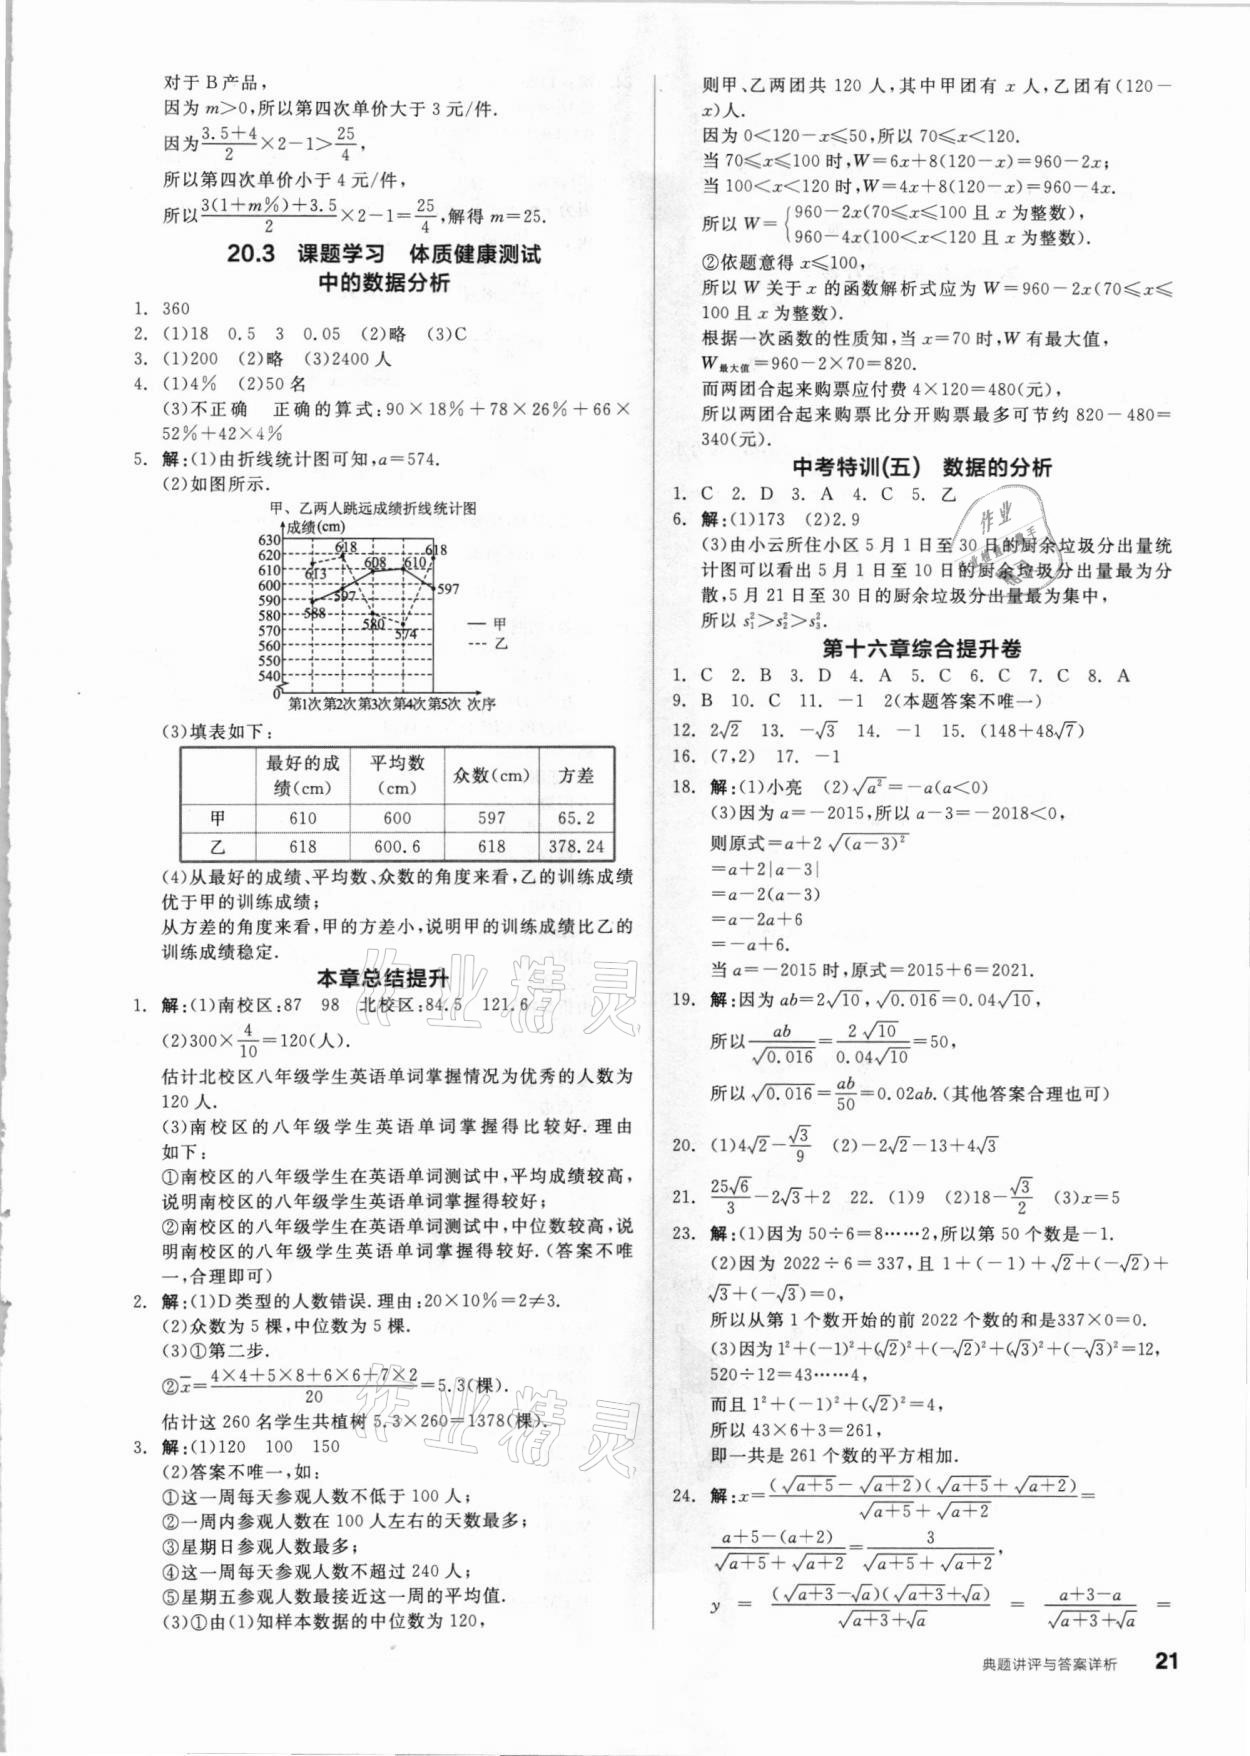 对于B产品，
因为 m＞0，所以第四次单价大于 3 元/件.
因为(3.5+4)/2×2-1＞25/4，
所以第四次单价小于 4 元/件，
所以(3(1+m%)+3.5)/2×2-1=25/4，解得 m=25.
20.3 课题学习 体质健康测试
中的数据分析
1. 360
2. (1)18 0.5 3 0.05 (2)略 (3)C
3. (1)200 (2)略 (3)2400 人
4. (1)4% (2)50 名
(3)不正确 正确的算式：90×18%+78×26%+66×
52%+42×4%
5. 解：(1)由折线统计图可知，a=574.
(2)如图所示.
甲、乙两人跳远成绩折线统计图
成绩(cm)
630
620
610
600
590
580
570
560
550
540
0
613 618 608 610 618
588 597 580 574 597
甲
乙
第1次 第2次 第3次 第4次 第5次 次序
(3)填表如下：
最好的成绩(cm) 平均数(cm) 众数(cm) 方差
甲 610 600 597 65.2
乙 618 600.6 618 378.24
(4)从最好的成绩、平均数、众数的角度来看，乙的训练成绩
优于甲的训练成绩；
从方差的角度来看，甲的方差小，说明甲的训练成绩比乙的
训练成绩稳定.
本章总结提升
1. 解：(1)南校区：87 98 北校区：84.5 121.6
(2)300×4/10=120(人).
估计北校区八年级学生英语单词掌握情况为优秀的人数为
120 人.
(3)南校区的八年级学生英语单词掌握得比较好.理由
如下：
①南校区的八年级学生在英语单词测试中，平均成绩较高，
说明南校区的八年级学生英语单词掌握得较好；
②南校区的八年级学生在英语单词测试中，中位数较高，说
明南校区的八年级学生英语单词掌握得较好.(答案不唯
一，合理即可)
2. 解：(1)D类型的人数错误.理由：20×10%=2≠3.
(2)众数为 5 棵，中位数为 5 棵.
(3)①第二步.
②x̄=(4×4+5×8+6×6+7×2)/20=5.3(棵).
估计这 260 名学生共植树 5.3×260=1378(棵).
3. 解：(1)120 100 150
(2)答案不唯一，如：
①这一周每天参观人数不低于 100 人；
②一周内参观人数在 100 人左右的天数最多；
③星期日参观人数最多；
④这一周每天参观人数不超过 240 人；
⑤星期五参观人数最接近这一周的平均值.
(3)①由(1)知样本数据的中位数为 120，
则甲、乙两团共 120 人，其中甲团有 x 人，乙团有(120-
x)人.
因为 0＜120-x≤50，所以 70≤x＜120.
当 70≤x≤100 时，W=6x+8(120-x)=960-2x；
当 100＜x＜120 时，W=4x+8(120-x)=960-4x.
所以 W={960-2x(70≤x≤100 且 x 为整数)，
960-4x(100＜x＜120 且 x 为整数).
②依题意得 x≤100，
所以 W 关于 x 的函数解析式应为 W=960-2x(70≤x≤
100 且 x 为整数).
根据一次函数的性质知，当 x=70 时，W 有最大值，
W最大值=960-2×70=820.
而两团合起来购票应付费 4×120=480(元)，
所以两团合起来购票比分开购票最多可节约 820-480=
340(元).
中考特训(五) 数据的分析
1. C 2. D 3. A 4. C 5. 乙
6. 解：(1)173 (2)2.9
(3)由小云所住小区 5 月 1 日至 30 日的厨余垃圾分出量统
计图可以看出 5 月 1 日至 10 日的厨余垃圾分出量最为分
散，5 月 21 日至 30 日的厨余垃圾分出量最为集中，
所以 s₁²＞s₂²＞s₃².
第十六章综合提升卷
1. C 2. B 3. D 4. A 5. C 6. C 7. C 8. A
9. B 10. C 11. -1 2(本题答案不唯一)
12. 2√2 13. -√3 14. -1 15. (148+48√7)
16. (7,2) 17. -1
18. 解：(1)小亮 (2)√a²=-a(a＜0)
(3)因为 a=-2015，所以 a-3=-2018＜0，
则原式=a+2√(a-3)²
=a+2|a-3|
=a-2(a-3)
=a-2a+6
=-a+6.
当 a=-2015 时，原式=2015+6=2021.
19. 解：因为 ab=2√10，√0.016=0.04√10，
所以ab/√0.016=2√10/0.04√10=50，
所以√0.016=ab/50=0.02ab.(其他答案合理也可)
20. (1)4√2-√3/9 (2)-2√2-13+4√3
21. 25√6/3-2√3+2 22. (1)9 (2)18-√3/2 (3)x=5
23. 解：(1)因为 50÷6=8……2，所以第 50 个数是-1.
(2)因为 2022÷6=337，且 1+(-1)+√2+(-√2)+
√3+(-√3)=0，
所以从第 1 个数开始的前 2022 个数的和是337×0=0.
(3)因为 1²+(-1)²+(√2)²+(-√2)²+(√3)²+(-√3)²=12，
520÷12=43……4，
而且 1²+(-1)²+(√2)²=4，
所以 43×6+3=261，
即一共是 261 个数的平方相加.
24. 解：x=(√(a+5)-√(a+2))(√(a+5)+√(a+2))/(√(a+5)+√(a+2))=
(a+5-(a+2))/(√(a+5)+√(a+2))=3/(√(a+5)+√(a+2))，
y=(√(a+3)-√a)(√(a+3)+√a)/(√(a+3)+√a)=(a+3-a)/(√(a+3)+√a)=
典题讲评与答案详析 21
作业精灵
作业精灵
作业